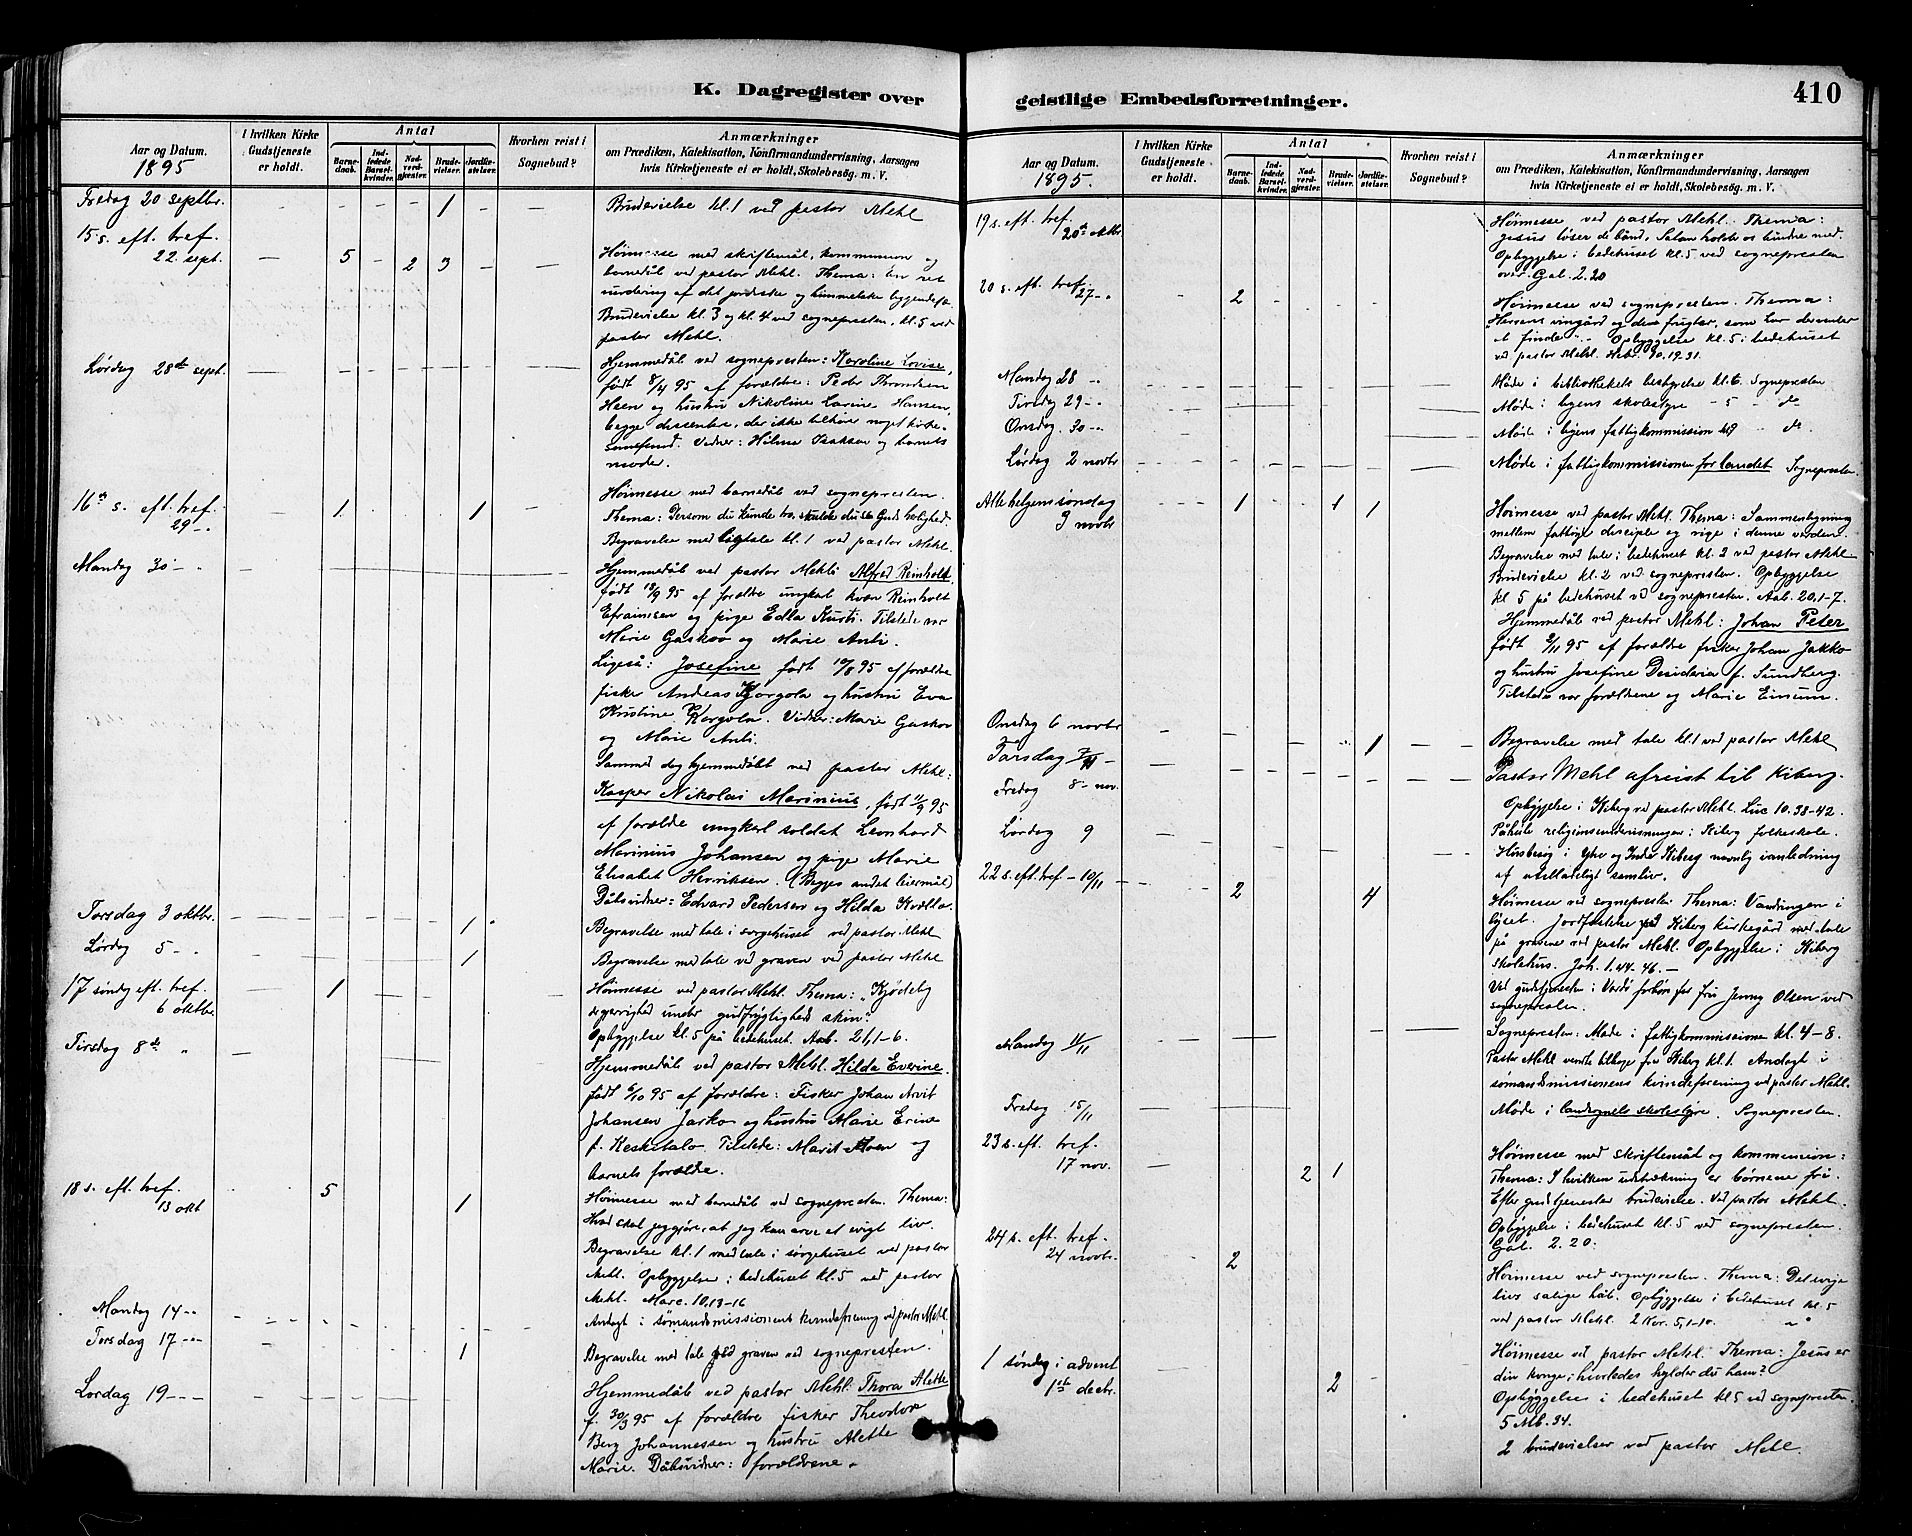 K. Dagregister over
Aar og Datum.
1895
I hvilken Kirke Gudstjeneste er holdt.
Antal
Barnedaab.
Indledede Barselkvinder.
Nadverdgjester.
Brudevielser.
Jordfæstelser.
Hvorhen reist i Sognebud?
Anmærkninger
om Prædiken, Katekisation, Konfirmandundervisning, Aarsagen
hvis Kirketjeneste ei er holdt, Skolebesøg. m. V.
Fredag 20 septbr. - - - - 1 - - Brudevielse kl. 1 ved pastor Mehl
15 s. eft. tref.
22. sept. - 5 - 2 3 - - Høimesse med skriftemål, kommunion og
barnedåb ved pastor Mehl. Thema: En ret
vurdering af det jordiske og himmelske
Brudevielse kl. 3 og kl. 4 ved sognepresten, kl. 5 ved
pastor Mehl.
Lørdag 28de sept. Hjemmedåb ved sognepresten: Karoline Lovise,
født 8/4 95 af forældre: Peder Throndsen
Heen og hustru Nikoline Larine Hansen,
begge dissentere, der ikke tilhører noget kirke-
samfund. Vidner: Hilma Isaksen og barnets
moder.
16de s. eft. tref.
29 - - 1 1 Høimesse med barnedåb ved sognepresten.
Thema: Dersom du kunde tro, skulde du se Guds herlighed.
Begravelse med ligtale kl. 1 ved pastor Mehl.
Mandag 30 - Hjemmedåb ved pastor Mehl: Alfred Reinholt,
født 12/9 95 af forældre ungkarl kvæn Reinholt
Efraimsen og pige Edla Kurti. Tilstede var
Marie Gaskov og Marie Anti.
Ligeså: Josefine født 10/8 95 af forældre
fisker Andreas Korgola og hustru Eva
Kristine Korgola. Vidner: Marie Gaskov
og Marie Anti.
Samme dag hjemmedøbt ved pastor Mehl:
Kasper Nikolai Marinius, født 11/9 95
af forældre ungkarl soldat Leonhard
Marinius Johansen og pige Marie
Elisabet Henriksen. (Begges andet leiermål)
Dåbsvidner: Edvard Pedersen og Hilda
Torsdag 3 oktbr. 1 Begravelse med tale i sørgehuset ved pastor Mehl
Lørdag 5 - 1 Begravelse med tale ved graven ved pastor Mehl
17 søndg eft. tref.
6 oktbr. 1 Høimesse ved pastor Mehl. Thema: "Kjødelig
ærgerrighed under gudfrygtigheds skin".
Opbyggelse kl. 5 på bedehuset. Aab. 21, 1-6.
Tirsdag 8de " Hjemmedåb ved pastor Mehl. Hilda Everine
født 6/10 95 af forældre: Fisker Johan Arvit
Johansen Jarko og hustru Marie Erine
f. Keskitalo. Tilstede: Marit Moen og
barnets forældre.
18 s. eft. tref.
13 okt 5 1 Høimesse med barnedåb ved sognepresten. Thema:
Hvad skal jeg gjøre, at jeg kan arve et evigt liv.
Begravelse kl. 1 med tale i sørgehuset ved pastor
Mehl. Opbyggelse i bedehuset kl. 5 ved pastor
Mehl. Marc. 10, 13-16
Mandag 14 - Andagt i sømandsmissionens kvindeforening ved pastor Mehl.
Torsdag 17 - 1 Begravelse med tale ved graven ved sognepresten.
Lørdag 19 - Hjemmedåb ved pastor Mehl: Thora Alette
f. 30/3 95 af forældre fisker Theodor
Berg Johannessen og hustru Alette
Marie. Dåbsvidner: forældrene.
geistlige Embedsforretninger.
410
Aar og Datum.
1895.
I hvilken Kirke Gudstjeneste er holdt.
Antal
Barnedaab.
Indledede Barselkvinder.
Nadverdgjester.
Brudevielser.
Jordfæstelser.
Hvorhen reist i Sognebud?
Anmærkninger
om Prædiken, Katekisation, Konfirmandundervisning, Aarsagen
hvis Kirketjeneste ei er holdt, Skolebesøg. m. V.
19 s. eft. tref.
20de oktbr. Høimesse ved pastor Mehl. Thema:
Jesus løser de bånd, Satan holder os bundne med.
Opbyggelse i bedehuset kl. 5 ved sognepresten
over Gal. 2. 20
20 s. eft. tref.
27 - " 2 Høimesse ved sognepresten. Thema:
Herrens vingård og dens frugter, som Herren venter
at finde. Opbyggelse kl. 5 i bedehuset
ved pastor Mehl. Hebr. 10. 19. 31.
Mandag 28 " Møde i bibliothekets bestyrelse kl. 6. Sognepresten
Tirsdag 29 - " Møde i byens skolestyre - 5 - do
Onsdag 30 - " Møde i byens fattigkommission kl " do
Lørdag 2 novbr Møde i fattigkommissionen for landet Sognepresten
Alle helgens søndag
3 novbr 1 1 1 Høimesse ved pastor Mehl. Thema: Sammenligning
mellem fattige disciple og rige i denne verden.
Begravelse med tale i bedehuset kl. 2 ved pastor Mehl
Brudevielse kl. 2 ved sognepresten. Opbyggelse
kl 5 på bedehuset ved sognepresten. Aab. 20, 1-7.
Hjemmedåb ved pastor Mehl: Johan Peter
født 2/11 95 af forældre fisker Johan Jakko
og hustru Josefine Desideria f. Sundberg.
Tilstede var forældrene og Marie Einum.
Onsdag 6 novbr 1 Begravelse med tale kl. 1 ved pastor Mehl
Torsdag 7/11 - Pastor Mehl afreist til Kiberg.
Fredag 8 - nov. Opbyggelse i Kiberg ved pastor Mehl. Luc 10. 38-42.
Lørdag 9 Påhørte religionsundervisningen i Kiberg folkeskole.
Husbesøg i Ytre og Indre Kiberg navnlig i anledning
af utilladeligt samliv.
22 s. eft. tref - 10/11 2 4 Høimesse ved sognepresten. Thema: Vandringen i
lyset. Jordfæstelse ved Kiberg kirkegård med tale
på gravene ved pastor Mehl. Opbyggelse i Kiberg
skolehus. Joh. 1. 44-46. -
Ved gudstjenesten i Vardø forbøn for fru Jenny Olsen ved
sognepresten.
Mandag 11/11 Sognepresten: Møde i fattigkommissionen kl. 4-8.
Pastor Mehl vendte tilbage fra Kiberg kl. 1. Andagt i
sømandsmissionens kvindeforening ved pastor Mehl.
Fredag 15/11 Møde i landsognets skolestyre. Sognepresten.
23 s. eft. tref.
17 nov. 2 1 Høimesse med skriftemål og kommunion:
Thema: I hvilken udstrækning er børnene fri.
Efter gudstjenesten brudevielse. Ved pastor Mehl.
Opbyggelse i bedehuset kl. 5 ved sognepresten.
Gal. 2. 20.
24 s. eft. tref.
24 novbr. 2 Høimesse ved sognepresten. Thema: Det evige
livs salige håb. Opbyggelse i bedehuset kl. 5
ved pastor Mehl. 2 Kor. 5, 1-10.
1 søndag i advent
1ste decbr. 2 Høimesse ved pastor Mehl. Thema: Jesus er
din konge; hvorledes hylder du ham?
Opbyggelse i bedehuset kl. 5 ved sognepresten.
5 Mb. 34.
2 brudevielser ved pastor Mehl.